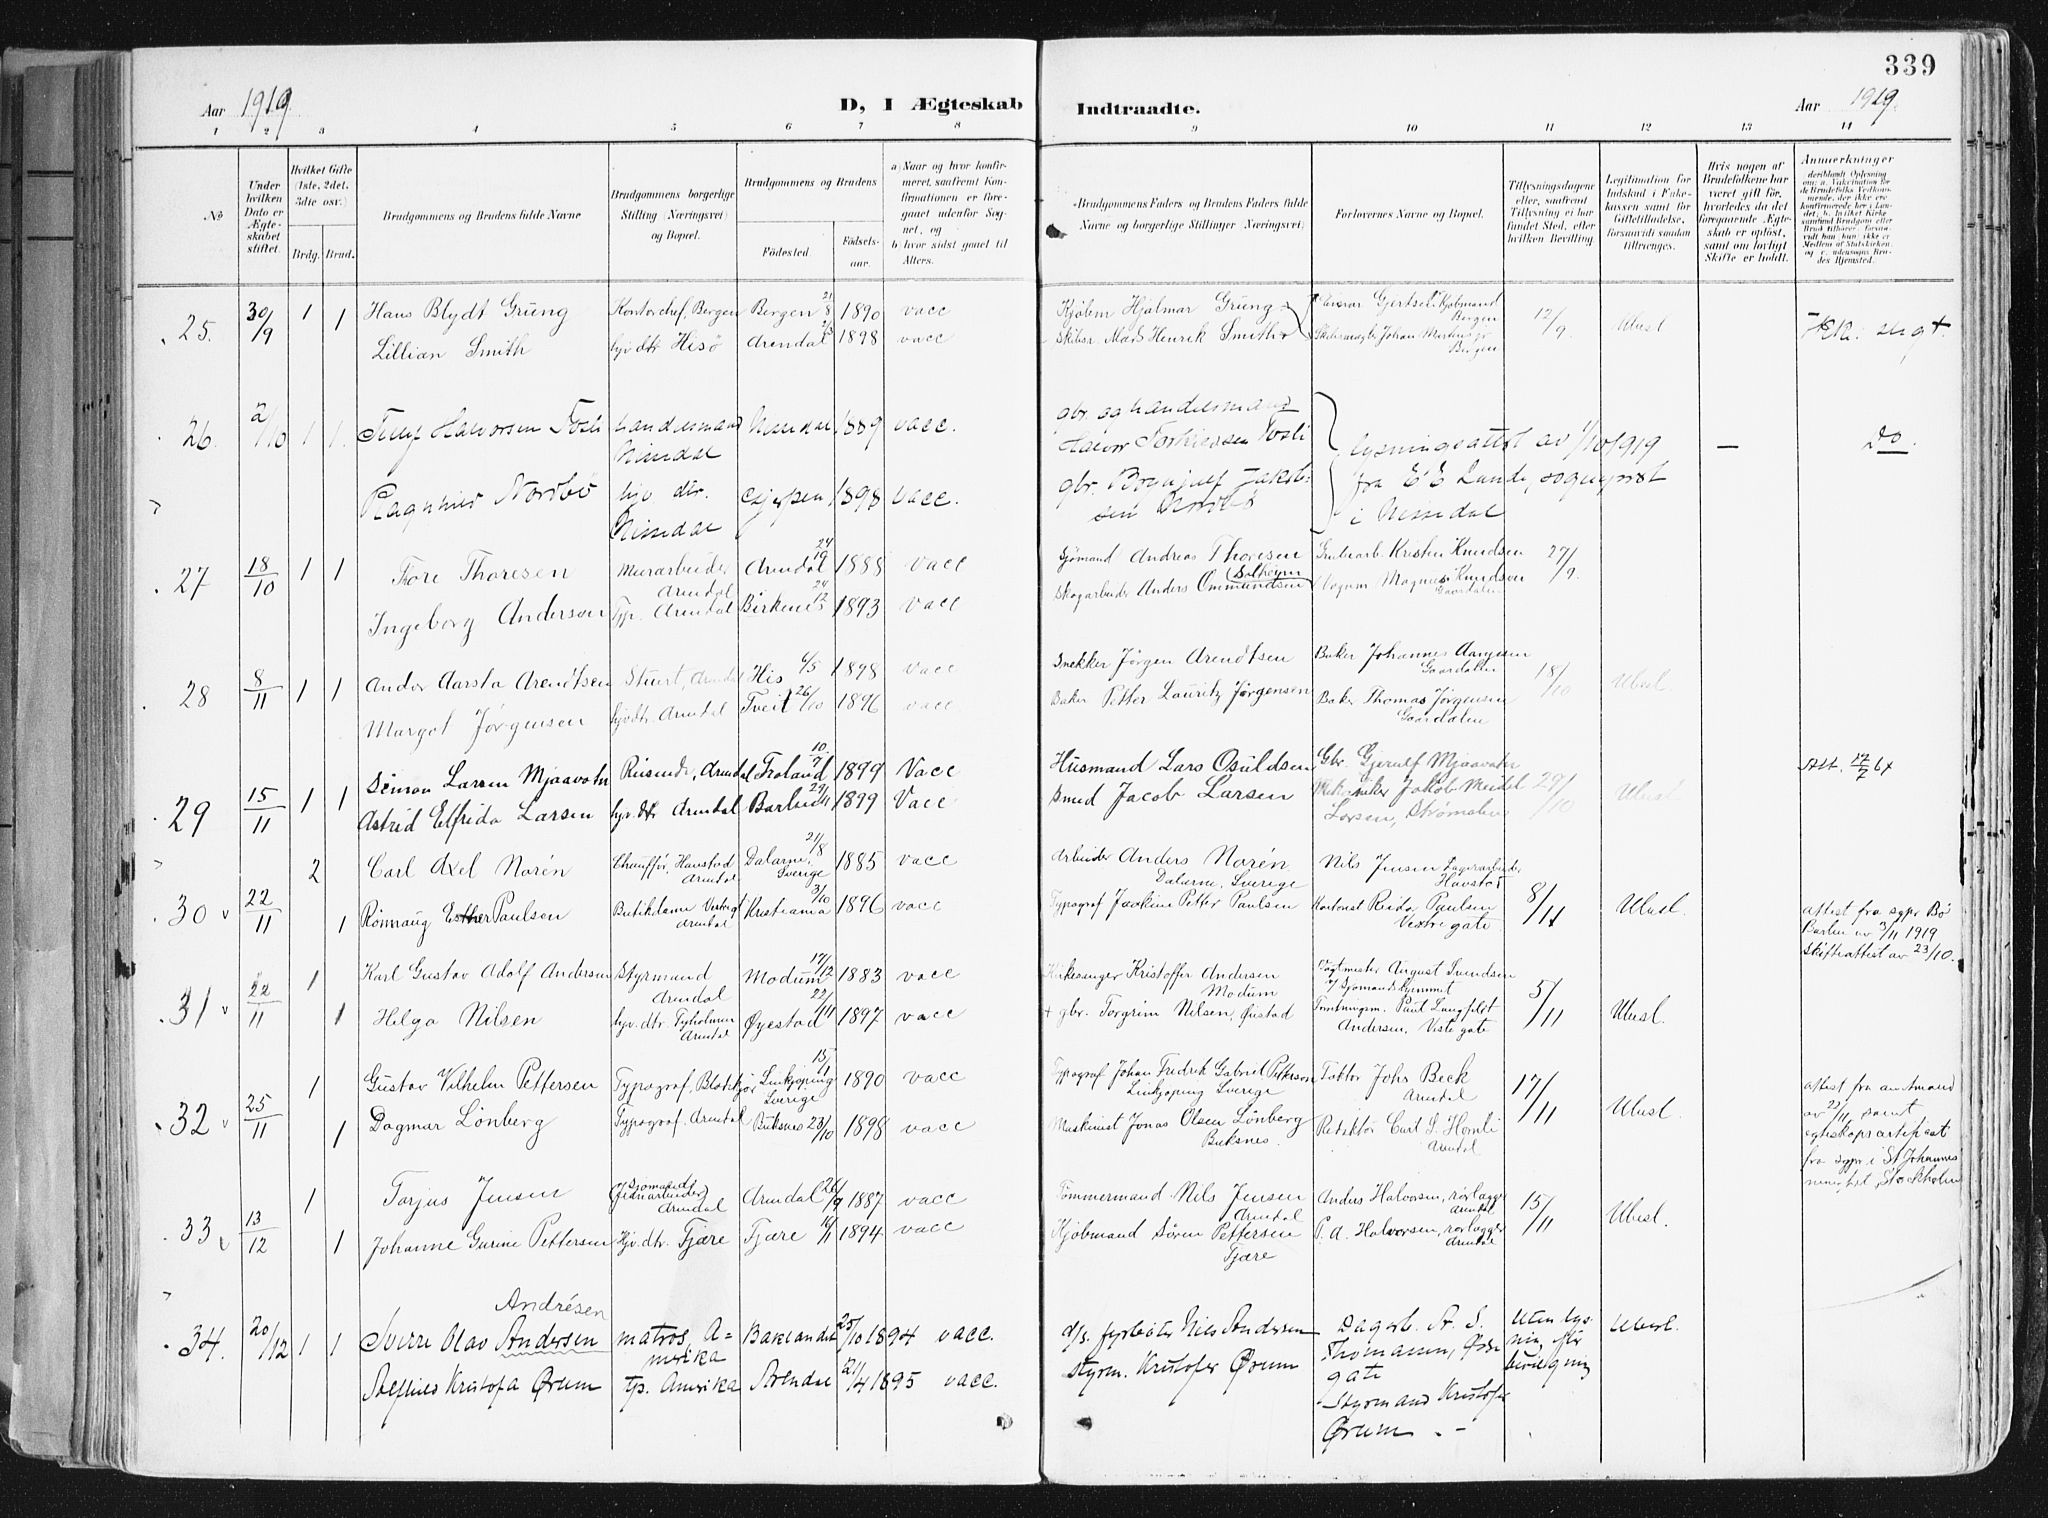 339
Aar 1919.
D, I Ægteskab
Indtraadte.
Aar 1919.
1 2 3 4 5 6 7 8 9 10 11 12 13 14
No
Under hvilken Dato er Ægteskabet stiftet.
Hvilket Gifte (1ste, 2det, 3die osv.)
Brdg. Brud.
Brudgommens og Brudens fulde Navne
Brudgommens borgerlige Stilling (Næringsvei) og Bopæl.
Brudgommens og Brudens
Fødested. Fødselsaar.
a) Naar og hvor konfirmeret, saafremt Konfirmationen er foregaaet udenfor Sognet, og
b) hvor sidst gaaet til Alters.
Brudgommens Faders og Brudens Faders fulde Navne og borgerlige Stillinger (Næringsvei)
Forlovernes Navne og Bopæl.
Tillysningsdagene eller, saafremt Tillysning ei har fundet Sted, efter hvilken Bevilling.
Legitimation for Indskud i Enkekassen samt for Giftetilladelse, forsaavidt saadan tiltrænges.
Hvis nogen af Brudefolkene har været gift før, hvorledes da det foregaaende Ægteskab er opløst, samt om lovligt Skifte er holdt.
Anmærkninger
25. 30/9 1 1 Hans Blydt Grung Kontorchef Bergen Bergen 21/8 1890 vacc Kjøbm Hjalmar Grung Gjertsen Kjøbmand Bergen 12/9 Ubesl
Lillian Smith hjv dtr Hisø Arendal 1898 vacc Skibsr. Mads Henrik Smith Johan Martens Bergen
26. 2/10 1 1. Halvorsen Tosli handelsmand Nissedal Nissedal 1889 vacc. gbr. og handelsmand
Halvor Tosli lysningsattest av 1/10 1919 — Do.
Ragnhild Nordbø hjv dtr. Nissedal Gjerpen 1898 vacc. gbr. Brynjulf Jakobsen Nordbø fra E E Lunde, sogneprest
i Nissedal
27 18/10 1 1 Thore Thoresen Murarbeider Arendal Arendal 24/19 1888 vacc Sjømand Andreas Thoresen Kristen Knudsen 27/9.
Ingeborg Andersen Tjp. Arendal Birkenes 24/12 1893 vacc Skogarbeider Anders Ommundsen (Solheim Magnus Knudsen Gaardalen
28 8/11 1 1 Andor Aarsta Arendtsen Stuert, Arendal His 6/5 1898 vacc Snekker Jørgen Arendtsen Baker Johannes Gaardalen 18/10 Ubesl.
Margot Jørgensen hjv.dtr. Arendal Tveit 26/10 1896 vacc Baker Petter Lauritz Jørgensen Baker Thomas Jørgensen Gaardalen
29 15/11 1 1 Simon Larsen Mjaavatn Arendal Froland 10/7 1899 Vacc Husmand Lars Osuldsen Gbr. Gjerulf Mjaavatn 29/10 Ubesl Att.
Astrid Elfrida Larsen hjv. dtr Arendal Barbu 29/11 1899 Vacc Smed Jacob Larsen Jakob Larsen, Strømsbu
30 v 22/11 2 Carl Axel Norén Chauffør, Havstad Arendal Dalarne, Sverige 21/8 1885 vacc Arbeider Anders Norén Dalarne, Sverige Nils Jensen Lagerarbeider Havstad 8/11 Ubesl.
1 Rønnaug Esther Paulsen Butikdame Arendal Kristiania 3/10 1896 vacc Typograf Joakim Petter Paulsen Reidar Paulsen Vestregate
attest fra sgpr Bø Barbu av 3/11 1919 Skifteattest av 23/10.
31 v 22/11 1 Karl Gustav Adolf Andersen Styrmand Arendal Modum 17/12 1883 vacc Kirkesanger Kristoffer Andersen Modum Vagtmester August Svendsen Sjømandshjemmet 5/11 Ubesl.
1 Helga Nilsen hjv. dtr. Tyholmen Arendal Øyestad 22/11 1897 vacc + gbr. Torgrim Nilsen, Øiestad Paul Langfeldt Andersen, Vestegate
32 v 25/11 1 Gustav Vilhelm Pettersen Typograf, Linkjøping Sverige 15/1 1890 vacc Typograf Johan Fredrik Gabriel Petterson Linkjøping Sverige Faktor Johs Beck Arendal 17/11 Ubesl.
1 Dagmar Lönberg Typograf. Arendal Buksnes 23/10 1898 vacc Maskinist Jonas Olsen Lönberg Buksnes. Redaktør Carl S. Homli Arendal
attest fra av samt fra sgpr i St Johannes menighet, Stockholm
33 v 13/12 1 Torjus Jensen Sjømand Arendal Arendal 26/9 1887 vacc Tømmermand Nils Jensen Arendal Anders Halvorsen, rørlægger Arendal 15/11 Ubesl.
1 Johanne Gurine Pettersen Hjv. dtr. Fjære Fjære 16/11 1894 vacc Kjøbmand Søren Pettersen Fjære P. A. Halvorsen, rørlægger Arendal
34. 20/12 1 1 Andrésen
Sverre Olav Andersen matros, Amerika Baklandet 25/10 1894 vacc. Nils Andersen Dagarb. A. S. Thomassen, Østre gate Uten lysning, efter bevilgning Ubesl.
Kristofa Ørum tjp. Amerika Arendal 21/4 1895 vacc. styrm. Kristofer Ørum Styrmand Kristofer Ørum